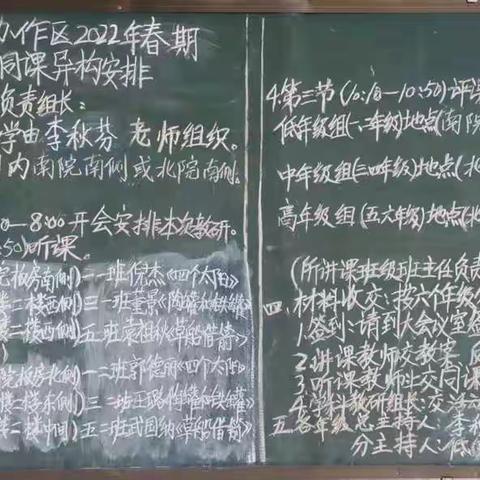 办作区2022年春期
同课异构安排
负责组长:
学由李秋芬 老师组织。
内南院南侧或北院南侧。
0—8:00开会安排本次教研。
50)听课。
院板房南侧)一一班倪杰《四个太阳》
楼二楼西侧)三一班董景《陶罐和铁罐》
二楼西侧)五一班袁桂秋《草船借箭》
院板房北侧)一二班郭德丽《四个太阳》
楼二楼东侧)三二班王璐《陶罐和铁罐》
二楼中间)五二班武国纳《草船借箭》
4.第三节(10:10—10:50)评课
低年级组(一、二年级)地点(南院
中年级组(三四年级)地点(北
高年级组(五六年级)地点(北
(所讲课班级班主任负责
四、材料收交:按六个年级
1.签到:请到大会议室签
2.讲课教师交教案
3.听课教师上交同课
4.学科教研组长:交活
五.各年级总主持人:李秋
分主持人:低